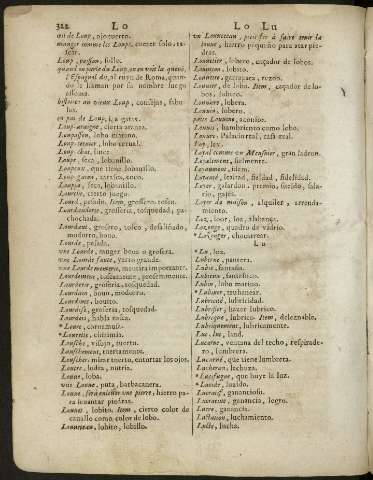 322 Lo
Lo Lu
œil de Loup, ojo tuerto.
manger comme les Loup, comer solo, ras-
car.
Loup, poisson, sollo.
quand on parle du Loup, on en voit la queuë,
l'Espagnol dit, al ruyn de Roma, quan-
do le llaman por su nombre luego
assoma.
histoires au vieux Loup, consejas, fabu-
las.
en pas de Loup, à gatas.
Loup-araigne, cierta araña.
Loupasson, lobo marino.
Loup-cervier, lobo cerval.
Loup-chat, lince.
Loupe, seca, lobanillo.
Loupeux, que tiene lobanillo.
Loup-garou,
Loupia, seca, lobanillo.
Lourche, cierto juego.
Lourd, pesado, Item, grossero, tosco.
Lourdauderie, grosseria, tosquedad, pa-
chochada.
Lourdaut, grossero, tosco, desaliñado,
modorro, bobo.
Lourde, pesada.
vne Lourde, muger boua o grossera.
vne Lourde faute, yerro grande.
vne Lourde menterie, mentira importante.
Lourdement, toscamente, pessadamente.
Lourderie, grosseria, tosquedad.
Lourdaut, bouo, modorro.
Lourdinet, bouito.
Lourdise, grosseria, tosquedad.
Lourdois, habla tosca.
* Loure, cornamusa.
* Lourette, chirimia.
Lousche, visojo, tuerto.
Louschement, tuertamente.
Louscher, mirar tuerto, entortar los ojos.
Loutre, lodra, nutria.
Louue, loba.
vne Louue, puta, barbacanera.
Louue, fer à enleuer vne pierre, hierro pa-
ra leuantar piedras.
Louuet, lobito, Item, cierto color de
cauallo como color de lobo.
Louueteau, lobito, lobillo.
vn Louueteau, petit fer à faire tenir la
louue, hierro pequeño para atar pie-
dras.
Louuetier, lobero, caçador de lobos.
Louueton, lobito.
Louuette, garrapata, rezno.
Louuetier, de lobo. Item, caçador de lo-
bos, lobero.
Louuiere, lobera.
Louuin, lobuno.
patte Louuine, aconito.
Louuis, hambriento como lobo.
Louure, Palacio real, casa real.
Loy, ley.
Loyal comme vn Meusnier, gran ladron.
Loyalement, fielmente.
Loyaument, idem.
Loyauté, lealtad, fieldad, fidelidad.
Loyer, galardon, premio, sueldo, sala-
rio, pajes.
Loyer de maison, alquiler, arrenda-
miento.
Loz, loor, loa, alabança.
Lozange, quadro de vidrio.
* Lozenger, chocarrear.
Lu
* Lu, luz.
Luberne, pantera.
Lubie, fantasia.
Lubieux, fantastico.
Lubin, lobo marino.
* Lubiner, truhanear.
Lubricité, lubricidad.
Lubrifier, hazer lubrico.
Lubrique, lubrico. Item, deleznable.
Lubriquement, lubricamente.
Luc, luc, laud.
Lucarne, ventana del techo, respirade-
ro, lumbrera.
Lucarné, que tiene lumbrera.
Lucheran, lechuza.
* Lucifugue, que huye la luz.
* Lucide, luzido.
Lucratif, gananciosō.
Lucratiue, ganancia, logro.
Lucre, ganancia.
Luctation, luchamiento.
Lucte, lucha.